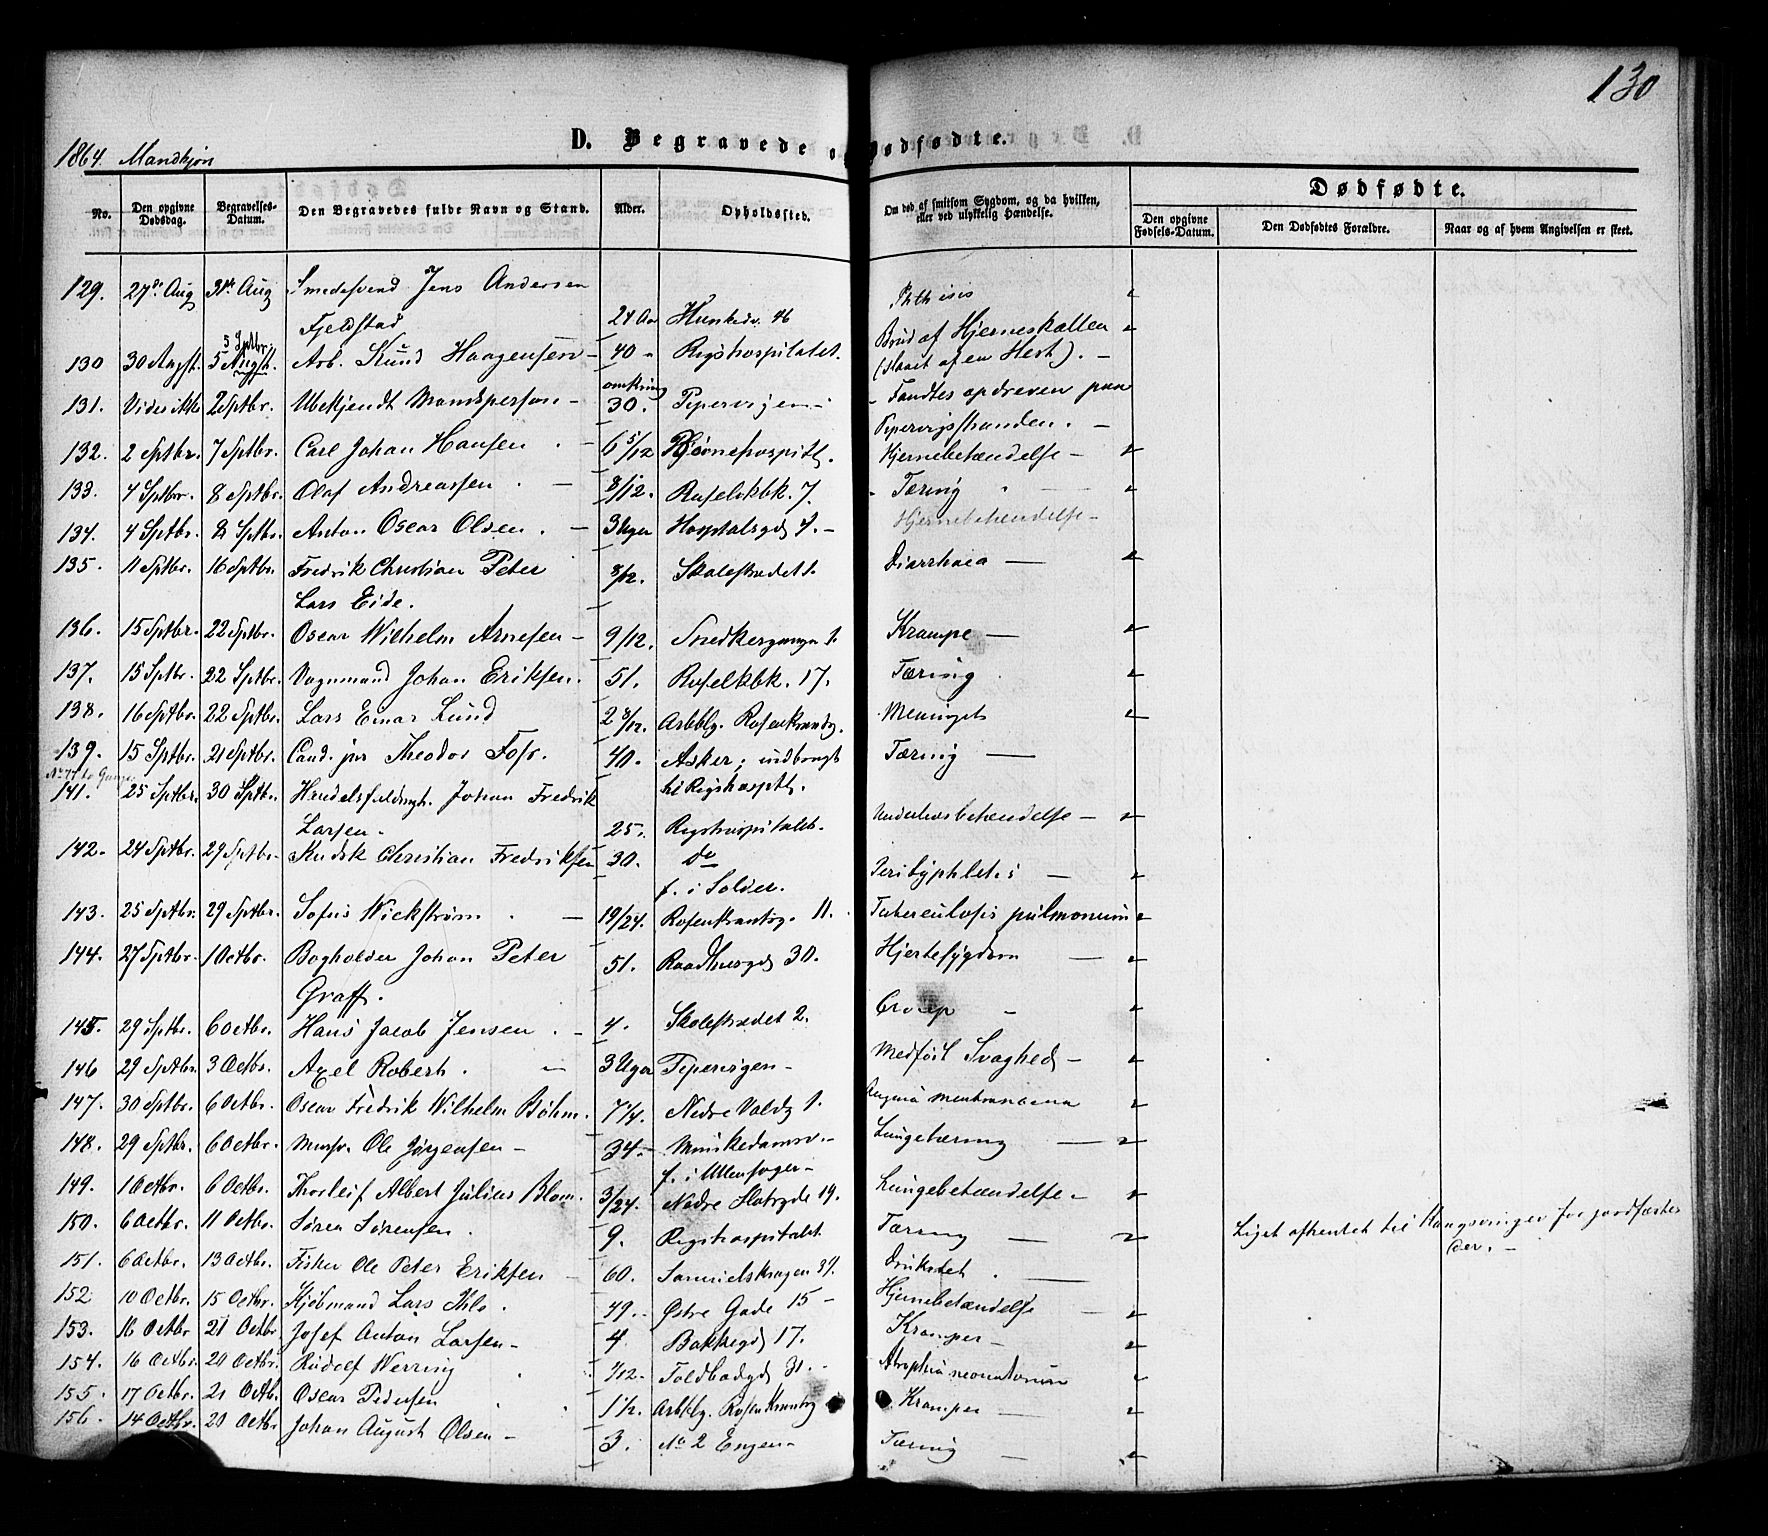 130
1864. Mandkjøn
D. Begravede og Dødfødte.
No. Den opgivne Dødsdag. Begravelses-Datum. Den Begravedes fulde Navn og Stand. Alder. Opholdssted. Om død af smitsom Sygdom, og da hvilken, eller ved ulykkelig Hændelse. Dødfødte.
Den opgivne Fødsels-Datum. Den Dødfødtes Forældre. Naar og af hvem Angivelsen er skeet.
129. 27de Aug 31te Aug Smedesvend Jens Andersen Phthisis
Fjeldstad 24 Aar Munkedv. 46
130 30 Augst. 5 Augst. 5 Sptbr. Arb. Knud Haagensen 40 Rigshospitalet. Brud af Hjerneskallen
(slaaet af en Hest).
131. Vides ikke 2 Sptbr. Ubekjendt Mandsperson omkring 30. Pipervigen Fandtes opdreven paa
Pipervigstranden.
132. 2 Sptbr. 7 Sptbr. Carl Johan Hansen 6 5/12 Børnehospitl. Hjernebetændelse
133. 4 Sptbr. 8 Sptbr. Olaf Andreassen 8/12. Ruselökbk. 7. Tæring
134. 4 Sptbr. 8 Sptbr. Anton Oscar Olsen. 3 Uger Hospitalsgd 4. Hjernebetændelse
135. 11 Sptbr. 16 Sptbr. Fredrik Christian Peter 8/12. Skolestrædet 1. Diarrhoea
Lars Eide.
136. 15 Sptbr. 22 Sptbr. Oscar Wilhelm Arnesen 9/12. Snedkergangen 1. Krampe
137. 15 Sptbr. 22 Sptbr. Vognmand Johan Eriksen. 51. Ruselkbk. 17. Tæring
138. 16 Sptbr. 22 Sptbr. Lars Einar Lund 2 8/12. Arbblg. Rosenkrandzg. Meningit
139. 15 Sptbr. 21 Sptbr. Cand. jur Theodor Foss. 40. Asker; indbragt Tæring
til Rigshosptl.
141. 25 Sptbr. 30 Sptbr. Handelsfuldmgt. Johan Fredrik
Larsen. 25. Rigshospitalet. Underlivsbetændelse
142. 24 Sptbr. 29 Sptbr. Kudsk Christian Fredriksen 30. do
f. i Solør. Perityphlitis
143. 25 Sptbr. 29 Sptbr. Sofus Wickstrøm 19/24. Rosenkrantzg. 11. Tuberculosis pulmonum
144. 27 Sptbr. 1 Octbr. Bogholder Johan Peter 51. Raadhusgd 30. Hjertesygdom
Graff.
145. 29 Sptbr. 6 Octbr. Hans Jacob Jensen 4. Skolestrædet 2. Croup
146 29 Sptbr. 3 Octbr. Axel Robert. 3 Uger Pipervigen Medfødt Svaghed
147. 30 Sptbr. 6 Octbr. Oscar Fredrik Wilhelm Bøhm. 7 1/4. Nedre Voldg 1. Angina membranacea
148. 29 Sptbr. 6 Octbr. Mursv. Ole Jørgensen 34. Munkedamsv. Lungetæring
f. i Ullensager
149. 1 Octbr. 6 Octbr. Thorleif Albert Julius Blom. 3/24. Nedre Slotsgde 19. Lungebetændelse.
150. 6 Octbr. 11 Octbr. Søren Sørensen. 9. Rigshospitalet Tæring Liget afhentet til Kongsvinger for jordfæstes
der.
151. 6 Octbr. 13 Octbr. Fisker Ole Peter Eriksen 60. Samuelskrogen 39. Druknet
152 10 Octbr. 15 Octbr. Kjøbmand Lars Ihle 49. Østre Gade 15 Hjernebetændelse
153. 16 Octbr 21 Octbr Josef Anton Larsen 4 Bakkegd 17. Kramper
154. 16 Octbr. 20 Octbr. Rudolf Werring 1/12. Toldbodgd 31. Atrophia neonatorum
155. 17 Octbr. 21 Octb. Oscar Pedersen 1 1/2. Arbblg. Rosenkrantzg Kramper
156. 14 Octbr. 20 Octbr. Johan August Olsen 3. No 2 Engen Tæring